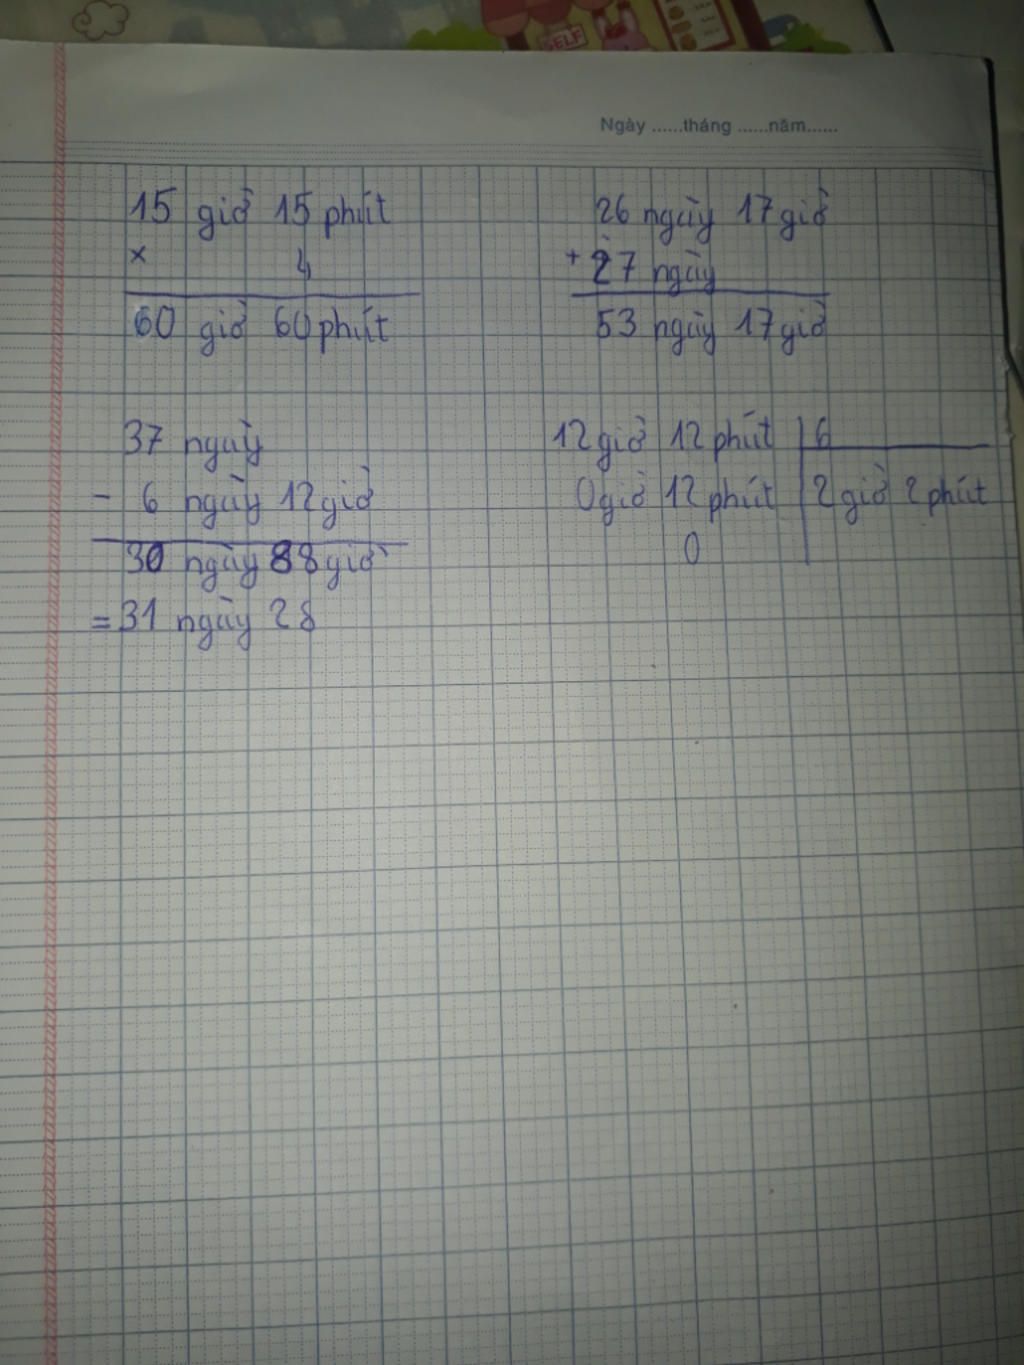 SELF
Ngày ......tháng ......năm......
15 giờ 15 phút
× 4
60 giờ 60 phút
26 ngày 17 giờ
+ 27 ngày
53 ngày 17 giờ
37 ngày
- 6 ngày 12 giờ
30 ngày 88 giờ
= 31 ngày 28
12 giờ 12 phút | 6
0 giờ 12 phút | 2 giờ 2 phút
0